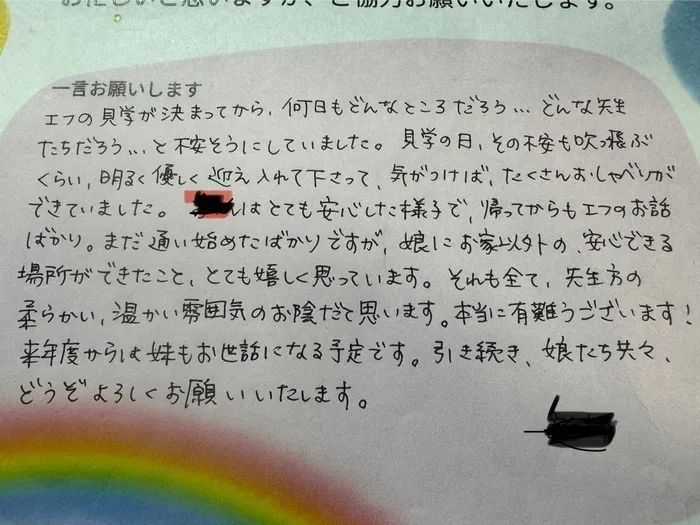 お忙しいと思いますが、ご協力お願いいたします。
一言お願いします
エフの見学が決まってから、何日もどんなところだろう…どんな先生
たちだろう…と不安そうにしていました。見学の日、その不安も吹っ飛ぶ
くらい、明るく優しく迎え入れて下さって、気がつけば、たくさんおしゃべりが
できていました。んはとても安心した様子で、帰ってからもエフのお話
ばかり。まだ通い始めたばかりですが、娘にお家以外の、安心できる
場所ができたこと、とても嬉しく思っています。それも全て、先生方の
柔らかい、温かい雰囲気のお陰だと思います。本当に有難うございます！
来年度からは妹もお世話になる予定です。引き続き、娘たち共々、
どうぞよろしくお願いいたします。